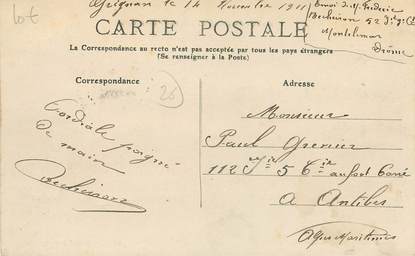 lot
Grignan le 14 Novembre 1911
Envoi de Mr Frédéric
52
Montélimar
Drôme
CARTE POSTALE
La Correspondance au recto n'est pas acceptée par tous les pays étrangers
(Se renseigner à la Poste)
Correspondance
Adresse
20
Cordiale poigné
de main
Monsieur
Paul Grenier
112 5 Cie au fort Carré
a Antibes
Alpes Maritimes